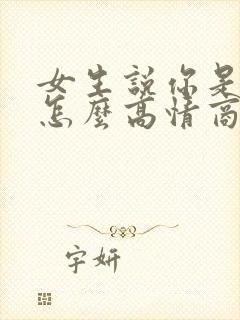 女生說你是
怎麼高情商
字妍